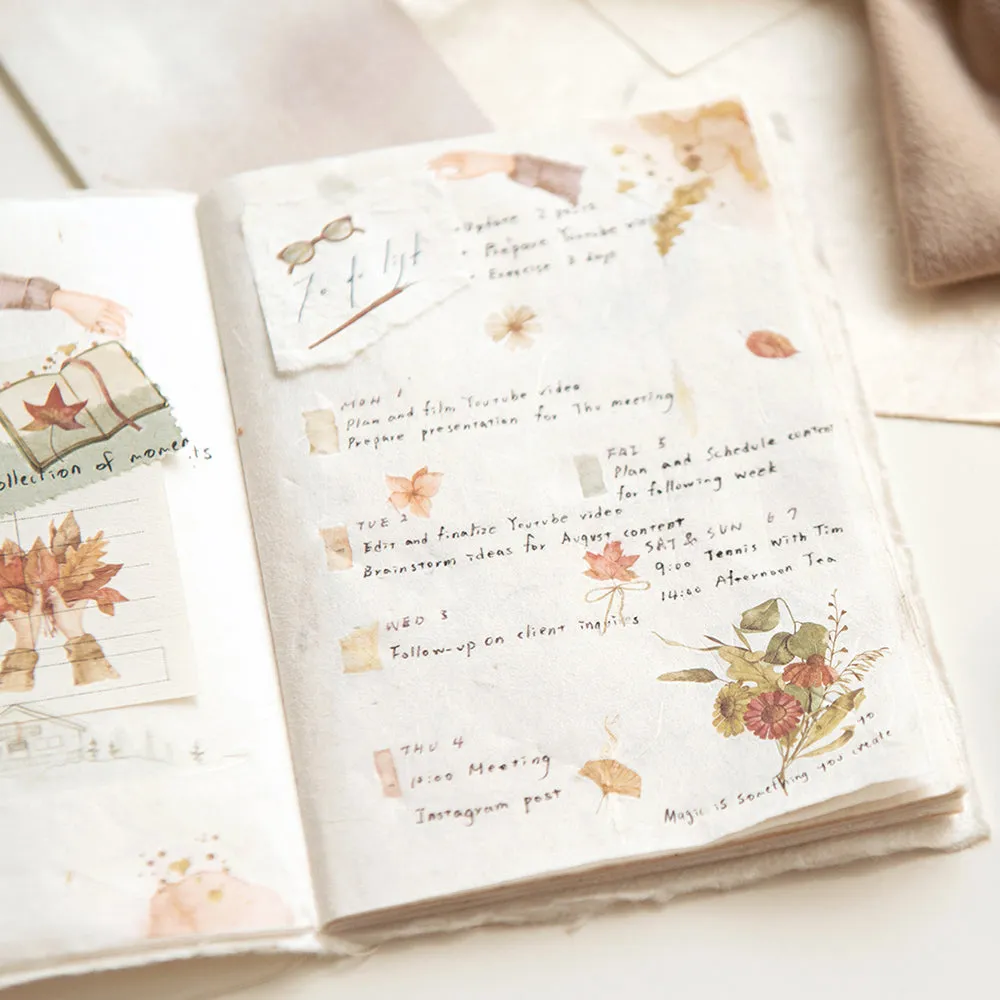 Collection of moments
To do list
• Update 2 posts
• Prepare Youtube video
• Exercise 3 days
MON 1
Plan and film Youtube video
Prepare presentation for Thu meeting
TUE 2
Edit and finalize Youtube video
Brainstorm ideas for August content
WED 3
Follow-up on client inquiries
THU 4
10:00 Meeting
Instagram post
FRI 5
Plan and Schedule content
for following week
SAT & SUN 6 7
9:00 Tennis with Tim
14:00 Afternoon Tea
Magic is something you create